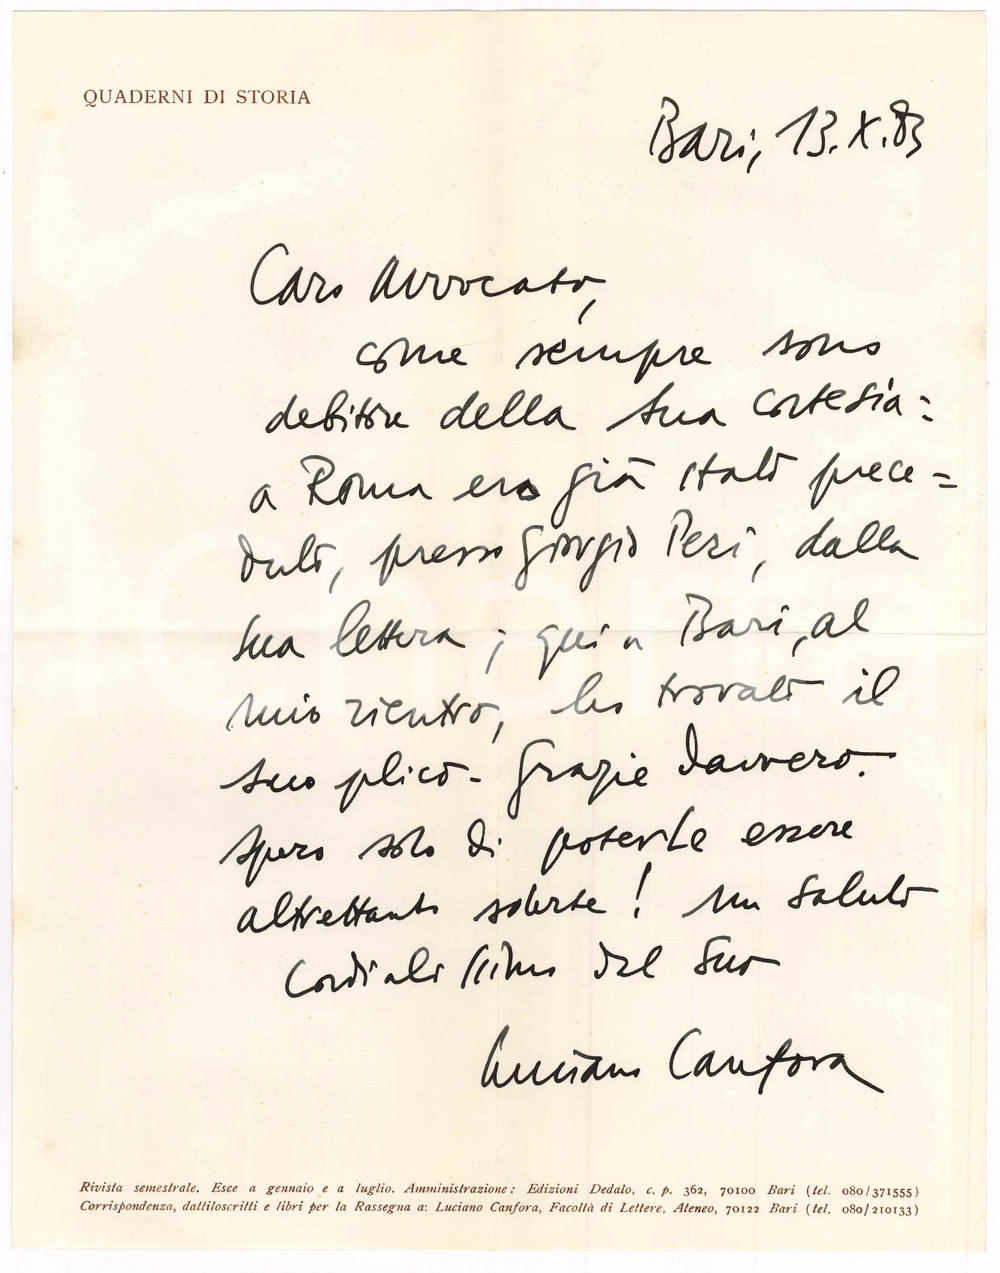 QUADERNI DI STORIA
Bari, 13.X.83
Caro Avvocato,
come sempre sono
debitore della Sua cortesia:
a Roma ero già stato prece=
duto, presso Giorgio Peri, dalla
Sua lettera; qui a Bari, al
mio rientro, ho trovato il
suo plico. Grazie davvero.
Spero solo di poterLe essere
altrettanto solerte! Un saluto
cordialissimo dal Suo
Luciano Canfora
Rivista semestrale. Esce a gennaio e a luglio. Amministrazione: Edizioni Dedalo, c. p. 362, 70100 Bari (tel. 080/371555)
Corrispondenza, dattiloscritti e libri per la Rassegna a: Luciano Canfora, Facoltà di Lettere, Ateneo, 70122 Bari (tel. 080/210133)